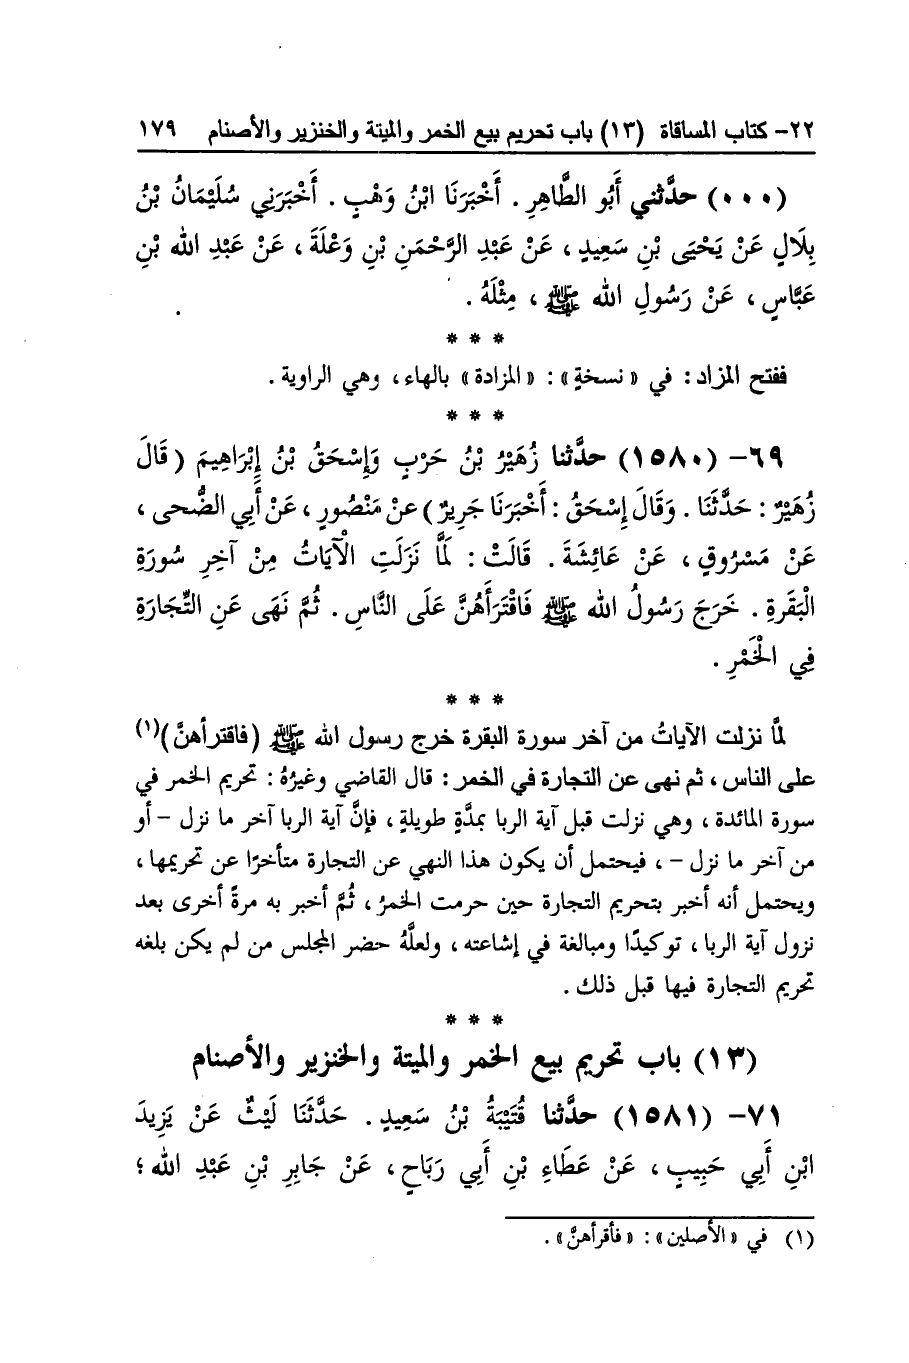 ٢٢- كتاب المساقاة (١٣) باب تحريم بيع الخمر والميتة والخنزير والأصنام ١٧٩
(٠٠٠) حدَّثني أَبُو الطَّاهِرِ. أَخْبَرَنَا ابْنُ وَهْبٍ. أَخْبَرَنِي سُلَيْمَانُ بْنُ
بِلَالٍ عَنْ يَحْيَى بْنِ سَعِيدٍ، عَنْ عَبْدِ الرَّحْمَنِ بْنِ وَعْلَةَ، عَنْ عَبْدِ الله بْنِ
عَبَّاسٍ، عَنْ رَسُولِ الله ﷺ، مِثْلَهُ.
* * *
ففتح المزاد: في «نسخةٍ»: «المزادة» بالهاء، وهي الراوية.
* * *
٦٩- (١٥٨٠) حدَّثنا زُهَيْرُ بْنُ حَرْبٍ وَإِسْحَقُ بْنُ إِبْرَاهِيمَ (قَالَ
زُهَيْرٌ: حَدَّثَنَا. وَقَالَ إِسْحَقُ: أَخْبَرَنَا جَرِيرٌ) عنْ مَنْصُورٍ، عَنْ أَبِي الضُّحى،
عَنْ مَسْرُوقٍ، عَنْ عَائِشَةَ. قَالَتْ: لَمَّا نَزَلَتِ الْآيَاتُ مِنْ آخِرِ سُورَةِ
الْبَقَرةِ. خَرَجَ رَسُولُ الله ﷺ فَاقْتَرَأَهُنَّ عَلَى النَّاسِ. ثُمَّ نَهَى عَنِ التِّجَارَةِ
فِي الْخَمْرِ.
* * *
لمَّا نزلت الآياتُ من آخر سورة البقرة خرج رسول الله ﷺ (فاقترأهنَّ)(١)
على الناس، ثم نهى عن التجارة في الخمر: قال القاضي وغيرُهُ: تحريم الخمر في
سورة المائدة، وهي نزلت قبل آية الربا بمدَّةٍ طويلةٍ، فإنَّ آية الربا آخر ما نزل – أو
من آخر ما نزل –، فيحتمل أن يكون هذا النهي عن التجارة متأخرًا عن تحريمها،
ويحتمل أنه أخبر بتحريم التجارة حين حرمت الخمرُ، ثُمَّ أخبر به مرةً أخرى بعد
نزول آية الربا، توكيدًا ومبالغة في إشاعته، ولعلَّهُ حضر المجلس من لم يكن بلغه
تحريم التجارة فيها قبل ذلك.
* * *
(١٣) باب تحريم بيع الخمر والميتة والخنزير والأصنام
٧١- (١٥٨١) حدَّثنا قُتَيْبَةُ بْنُ سَعِيدٍ. حَدَّثَنَا لَيْثٌ عَنْ يَزِيدَ
ابْنِ أَبِي حَبِيبٍ، عَنْ عَطَاءِ بْنِ أَبِي رَبَاحٍ، عَنْ جَابِرِ بْنِ عَبْدِ الله؛
(١) في «الأصلين»: «فأقرأهنَّ».